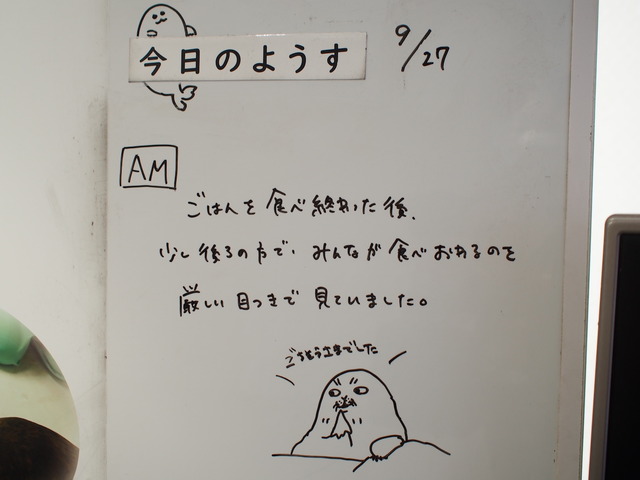 今日のようす
9/27
AM
ごはんを食べ終わった後、
少し後ろの方で、みんなが食べおわるのを
厳しい目つきで見ていました。
ごちそうさまでした